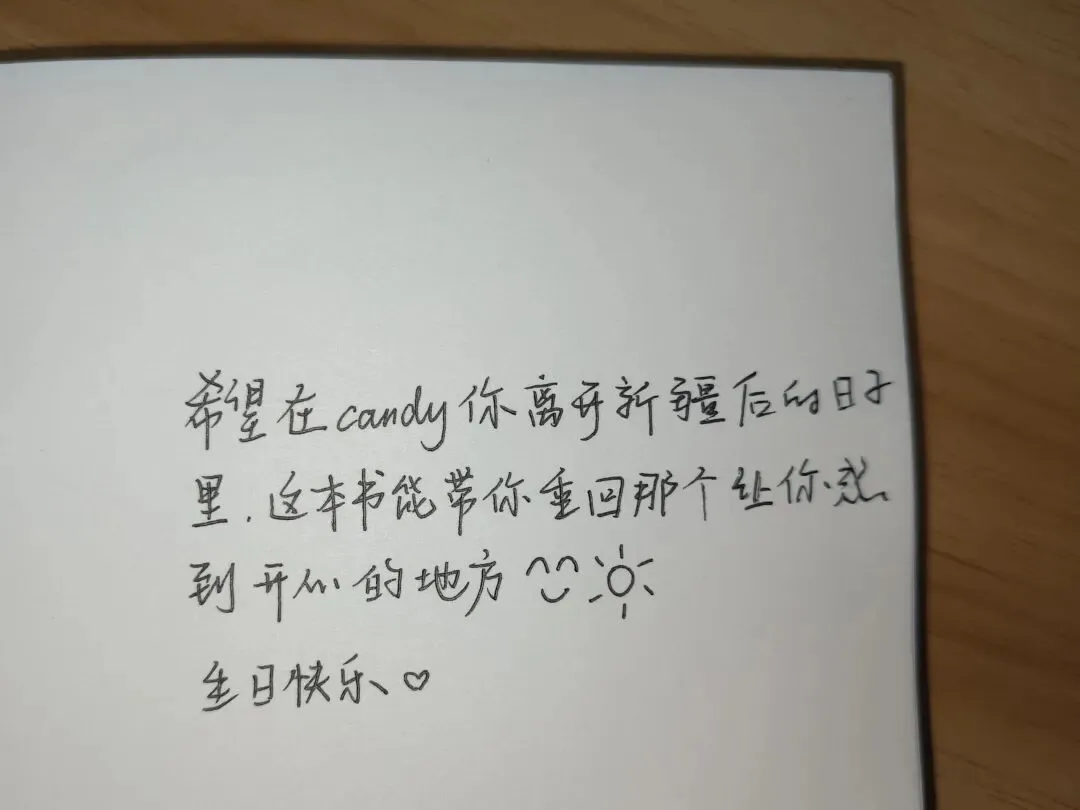 希望在candy你离开新疆后的日子
里，这本书能带你重回那个让你感
到开心的地方
生日快乐♡